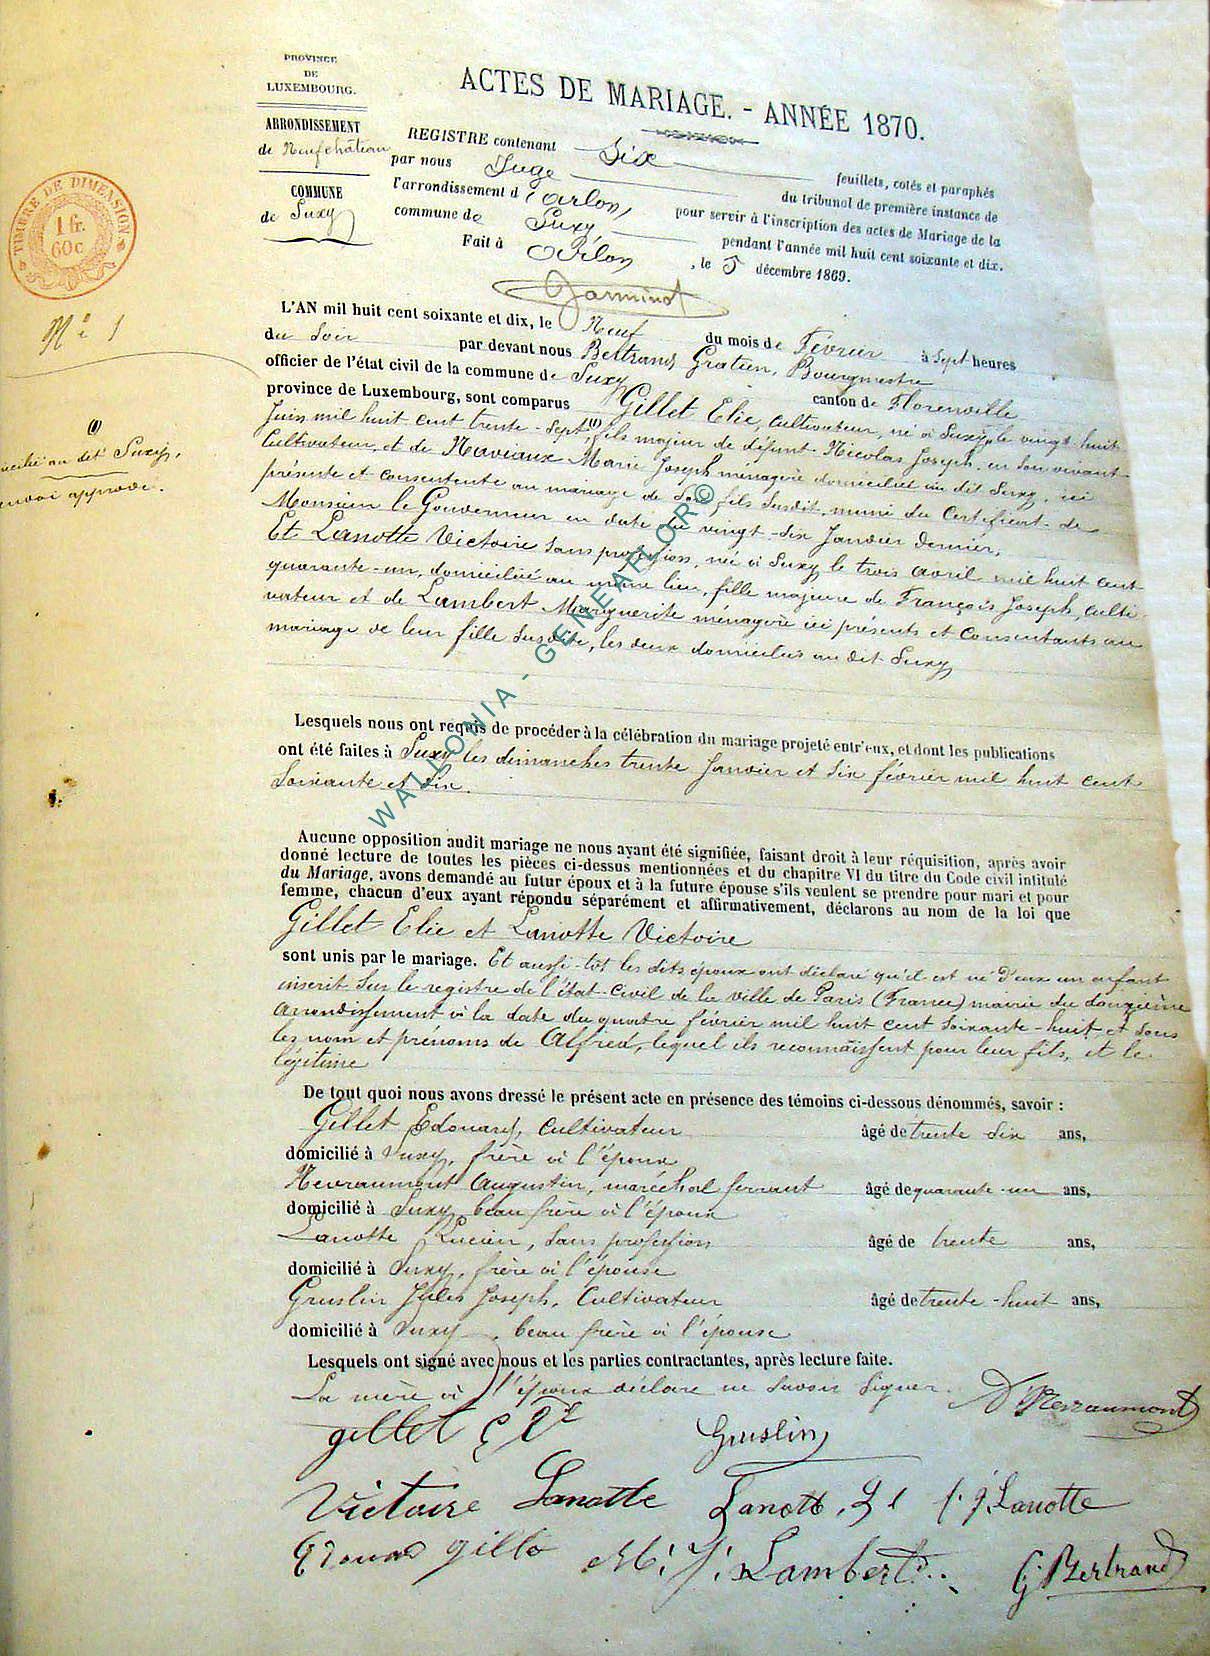 PROVINCE
DE
LUXEMBOURG.
ARRONDISSEMENT
de Neufchâteau
COMMUNE
de Suxy
TIMBRE DE DIMENSION
1 fr.
60c
ACTES DE MARIAGE. - ANNÉE 1870.
REGISTRE contenant Six feuillets, cotés et paraphés
par nous Juge du tribunal de première instance de
l'arrondissement d'Arlon, pour servir à l'inscription des actes de Mariage de la
commune de Suxy, pendant l'année mil huit cent soixante et dix.
Fait à Arlon, le 5 décembre 1869.
N° 1
L'AN mil huit cent soixante et dix, le Neuf du mois de Février à Sept heures
du Soir par devant nous Bertrand, Gratien, Bourgmestre
officier de l'état civil de la commune de Suxy canton de Florenville
province de Luxembourg, sont comparus Gillet Elie, Cultivateur, né à Suxy, le vingt-huit
Juin mil huit cent trente-sept, (1) fils majeur de défunt Nicolas Joseph, en son vivant
Cultivateur, et de Marie Joseph ménagère domiciliée au dit Suxy, ici
présente et consentente au mariage de Son fils Susdit, muni du Certificat de
Monsieur le Gouverneur en date du vingt-six Janvier dernier,
Et Lanotte Victoire Sans profession, née à Suxy le trois avril mil huit cent
quarante-un, domiciliée au même lieu, fille majeure de François Joseph, culti-
vateur et de Lambert Marguerite ménagère ici présents et Consentants au
mariage de leur fille Susdite, les deux domiciliés au dit Suxy
(1)
au dit Suxy,
approuvé.
Lesquels nous ont requis de procéder à la célébration du mariage projeté entr'eux, et dont les publications
ont été faites à Suxy les dimanches trente Janvier et Six février mil huit cent
Soixante et dix.
Aucune opposition audit mariage ne nous ayant été signifiée, faisant droit à leur réquisition, après avoir
donné lecture de toutes les pièces ci-dessus mentionnées et du chapitre VI du titre du Code civil intitulé
du Mariage, avons demandé au futur époux et à la future épouse s'ils veulent se prendre pour mari et pour
femme, chacun d'eux ayant répondu séparément et affirmativement, déclarons au nom de la loi que
Gillet Elie et Lanotte Victoire
sont unis par le mariage. Et aussi-tôt les dits époux ont déclaré qu'il est né D'eux un enfant
inscrit Sur le registre de l'état-civil de la ville de Paris (France) mairie du
arrondissement à la date du quatre février mil huit cent Soixante-huit, et Sous
les nom et prénoms de Alfred, lequel ils reconnaissent pour leur fils, et le
légitime
De tout quoi nous avons dressé le présent acte en présence des témoins ci-dessous dénommés, savoir :
Gillet Edouard, Cultivateur âgé de trente-Six ans,
domicilié à Suxy, frère à l'époux
Nevraumont Augustin, maréchal ferrant âgé de quarante-un ans,
domicilié à Suxy, beau frère à l'époux
Lanotte Lucien, Sans profession âgé de trente ans,
domicilié à Suxy, frère à l'épouse
Gruslin Jules Joseph, Cultivateur âgé de trente-huit ans,
domicilié à Suxy, beau frère à l'épouse
Lesquels ont signé avec nous et les parties contractantes, après lecture faite.
La mère à l'époux déclare ne Savoir Signer.
Nevraumont
gillet
Gruslin
Victoire Lanotte
Lanotte
f. j. Lanotte
M. J. Lambert
G Bertrand
WALLONIA - GENEAFLOR©